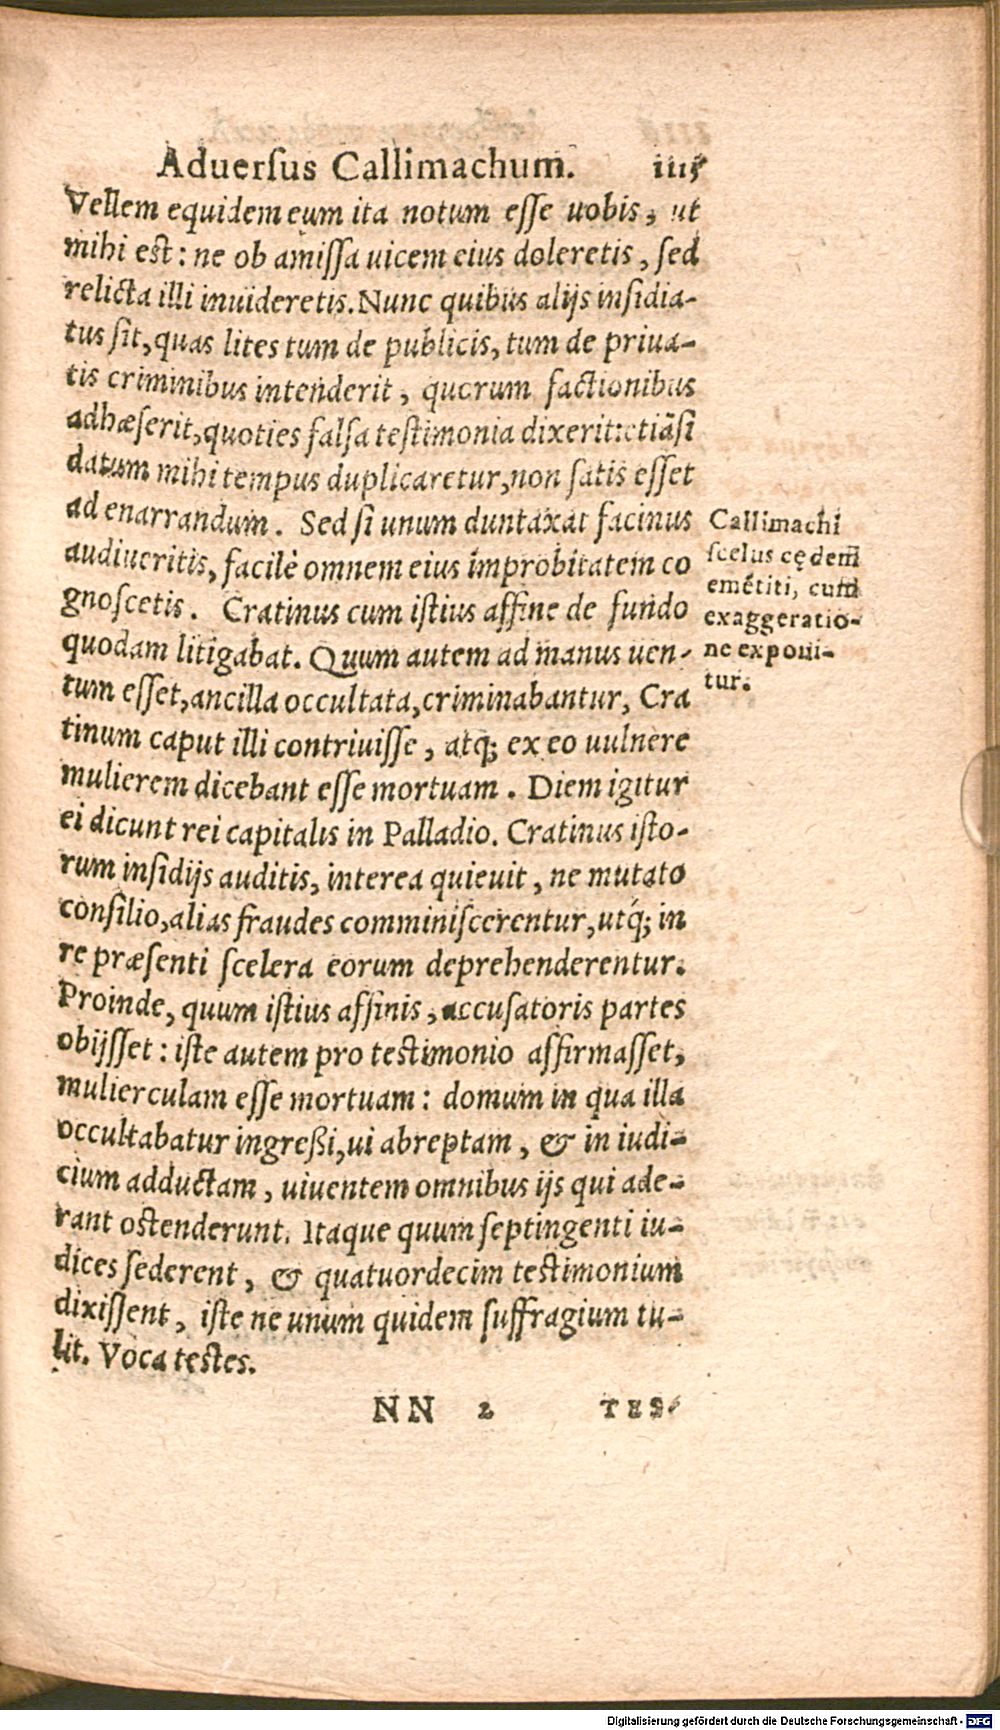 Aduersus Callimachum. iiij
Vellem equidem eum ita notum esse uobis, ut
mihi est: ne ob amissa uicem eius doleretis, sed
relicta illi inuideretis. Nunc quibus alijs insidia-
tus sit, quas lites tum de publicis, tum de priua-
tis criminibus intenderit, quorum factionibus
adhæserit, quoties falsa testimonia dixerit: etiãsi
datum mihi tempus duplicaretur, non satis esset
ad enarrandum. Sed si unum duntaxat facinus
audiueritis, facilè omnem eius improbitatem co
gnoscetis. Cratinus cum istius affine de fundo
quodam litigabat. Quum autem ad manus uen-
tum esset, ancilla occultata, criminabantur, Cra
tinum caput illi contriuisse, atq; ex eo uulnere
mulierem dicebant esse mortuam. Diem igitur
ei dicunt rei capitalis in Palladio. Cratinus isto-
rum insidijs auditis, interea quieuit, ne mutato
consilio, alias fraudes comminiscerentur, utq́; in
re præsenti scelera eorum deprehenderentur.
Proinde, quum istius affinis, accusatoris partes
obijsset: iste autem pro testimonio affirmasset,
mulierculam esse mortuam: domum in qua illa
occultabatur ingreßi, ui abreptam, & in iudi-
cium adductam, uiuentem omnibus ijs qui ade-
rant ostenderunt. Itaque quum septingenti iu-
dices sederent, & quatuordecim testimonium
dixissent, iste ne unum quidem suffragium tu-
lit. Voca testes.
NN 2 TES-
Callimachi
scelus cędem
emẽtiti, cum
exaggeratio-
ne exponi-
tur.
Digitalisierung gefördert durch die Deutsche Forschungsgemeinschaft - DFG